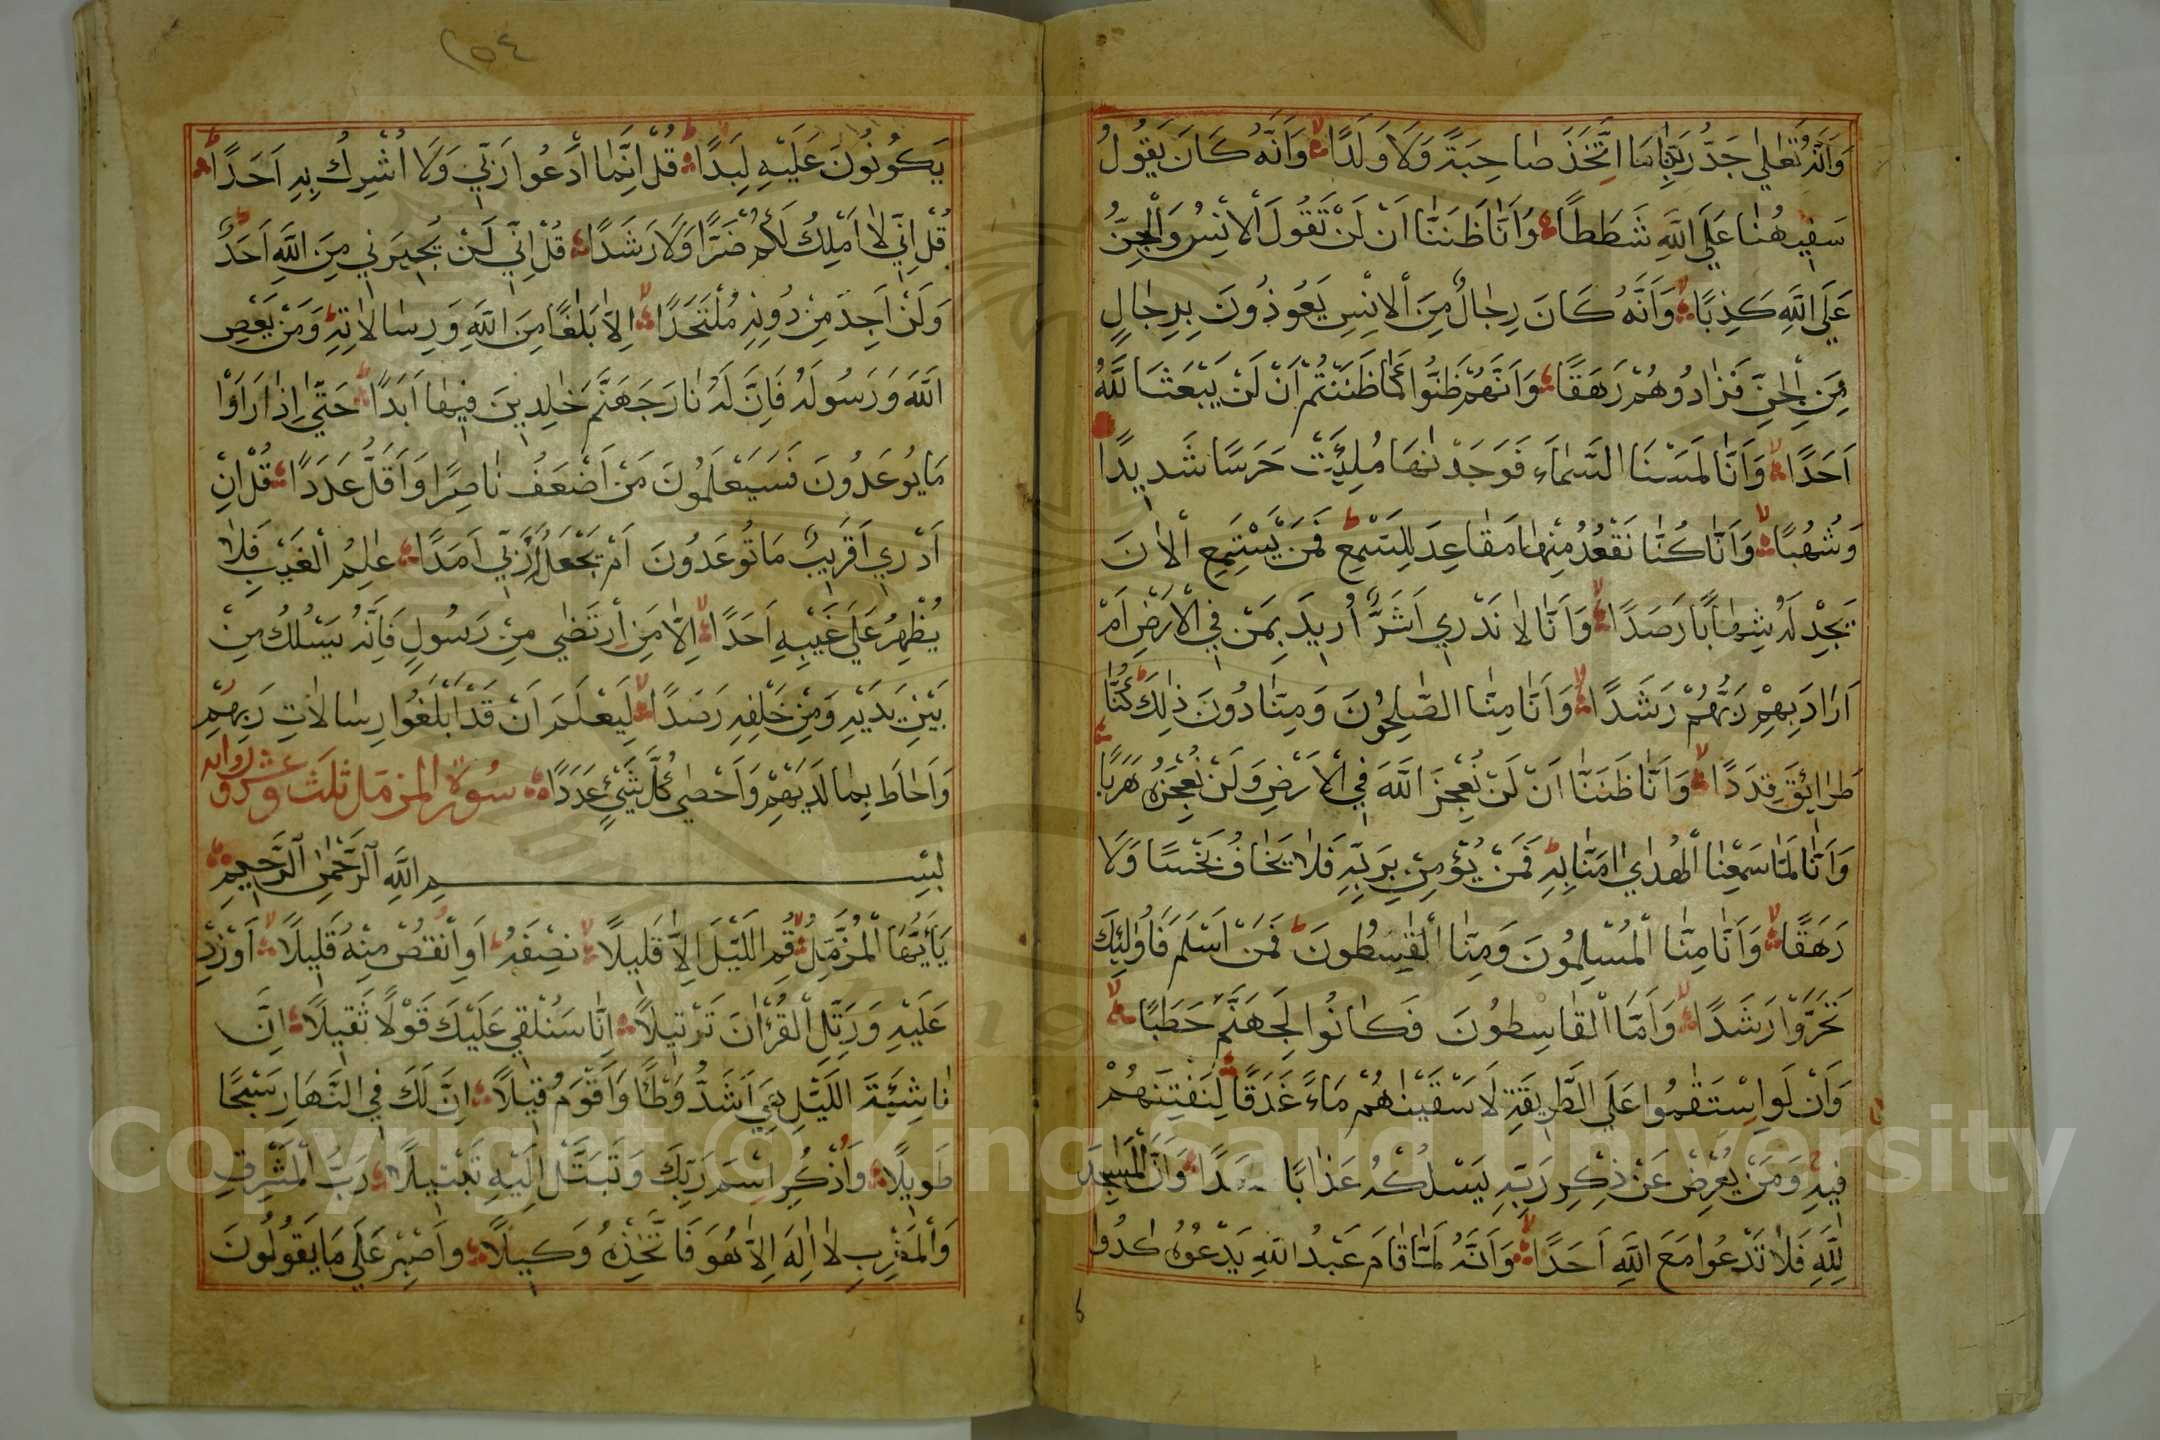 وَاَنَّهُ تَعٰلٰى جَدُّ رَبِّنَا مَا اتَّخَذَ صَاحِبَةً وَلَا وَلَدًا وَاَنَّهُ كَانَ يَقُولُ
سَفِيهُنَا عَلَى اللّٰهِ شَطَطًا وَاَنَّا ظَنَنَّا اَنْ لَنْ تَقُولَ الْاِنْسُ وَالْجِنُّ
عَلَى اللّٰهِ كَذِبًا وَاَنَّهُ كَانَ رِجَالٌ مِنَ الْاِنْسِ يَعُوذُونَ بِرِجَالٍ
مِنَ الْجِنِّ فَزَادُوهُمْ رَهَقًا وَاَنَّهُمْ ظَنُّوا كَمَا ظَنَنْتُمْ اَنْ لَنْ يَبْعَثَ اللّٰهُ
اَحَدًا وَاَنَّا لَمَسْنَا السَّمَاءَ فَوَجَدْنٰهَا مُلِئَتْ حَرَسًا شَدِيدًا
وَشُهُبًا وَاَنَّا كُنَّا نَقْعُدُ مِنْهَا مَقَاعِدَ لِلسَّمْعِ فَمَنْ يَسْتَمِعِ الْاٰنَ
يَجِدْ لَهُ شِهَابًا رَصَدًا وَاَنَّا لَا نَدْرِي اَشَرٌّ اُرِيدَ بِمَنْ فِي الْاَرْضِ اَمْ
اَرَادَ بِهِمْ رَبُّهُمْ رَشَدًا وَاَنَّا مِنَّا الصّٰلِحُونَ وَمِنَّا دُونَ ذٰلِكَ كُنَّا
طَرَائِقَ قِدَدًا وَاَنَّا ظَنَنَّا اَنْ لَنْ نُعْجِزَ اللّٰهَ فِي الْاَرْضِ وَلَنْ نُعْجِزَهُ هَرَبًا
وَاَنَّا لَمَّا سَمِعْنَا الْهُدٰى اٰمَنَّا بِهِ فَمَنْ يُؤْمِنْ بِرَبِّهِ فَلَا يَخَافُ بَخْسًا وَلَا
رَهَقًا وَاَنَّا مِنَّا الْمُسْلِمُونَ وَمِنَّا الْقٰسِطُونَ فَمَنْ اَسْلَمَ فَاُولٰئِكَ
تَحَرَّوْا رَشَدًا وَاَمَّا الْقَاسِطُونَ فَكَانُوا لِجَهَنَّمَ حَطَبًا
وَاَنْ لَوِ اسْتَقٰمُوا عَلَى الطَّرِيقَةِ لَاَسْقَيْنٰهُمْ مَاءً غَدَقًا لِنَفْتِنَهُمْ
فِيهِ وَمَنْ يُعْرِضْ عَنْ ذِكْرِ رَبِّهِ يَسْلُكْهُ عَذَابًا صَعَدًا وَاَنَّ الْمَسٰجِدَ
لِلّٰهِ فَلَا تَدْعُوا مَعَ اللّٰهِ اَحَدًا وَاَنَّهُ لَمَّا قَامَ عَبْدُ اللّٰهِ يَدْعُوهُ كَادُوا
٢٥٤
يَكُونُونَ عَلَيْهِ لِبَدًا قُلْ اِنَّمَا اَدْعُوا رَبِّي وَلَا اُشْرِكُ بِهِ اَحَدًا
قُلْ اِنِّي لَا اَمْلِكُ لَكُمْ ضَرًّا وَلَا رَشَدًا قُلْ اِنِّي لَنْ يُجِيرَنِي مِنَ اللّٰهِ اَحَدٌ
وَلَنْ اَجِدَ مِنْ دُونِهِ مُلْتَحَدًا اِلَّا بَلٰغًا مِنَ اللّٰهِ وَرِسَالَاتِهِ وَمَنْ يَعْصِ
اللّٰهَ وَرَسُولَهُ فَاِنَّ لَهُ نَارَ جَهَنَّمَ خٰلِدِينَ فِيهَا اَبَدًا حَتّٰى اِذَا رَاَوْا
مَا يُوعَدُونَ فَسَيَعْلَمُونَ مَنْ اَضْعَفُ نَاصِرًا وَاَقَلُّ عَدَدًا قُلْ اِنْ
اَدْرِي اَقَرِيبٌ مَا تُوعَدُونَ اَمْ يَجْعَلُ لَهُ رَبِّي اَمَدًا عٰلِمُ الْغَيْبِ فَلَا
يُظْهِرُ عَلٰى غَيْبِهِ اَحَدًا اِلَّا مَنِ ارْتَضٰى مِنْ رَسُولٍ فَاِنَّهُ يَسْلُكُ مِنْ
بَيْنِ يَدَيْهِ وَمِنْ خَلْفِهِ رَصَدًا لِيَعْلَمَ اَنْ قَدْ اَبْلَغُوا رِسَالَاتِ رَبِّهِمْ
وَاَحَاطَ بِمَا لَدَيْهِمْ وَاَحْصٰى كُلَّ شَيْئٍ عَدَدًا سورة المزمل ثلث وعشرون اٰية
بِسْمِ اللّٰهِ الرَّحْمٰنِ الرَّحِيمِ
يَا اَيُّهَا الْمُزَّمِّلُ قُمِ اللَّيْلَ اِلَّا قَلِيلًا نِصْفَهُ اَوِ انْقُصْ مِنْهُ قَلِيلًا اَوْ زِدْ
عَلَيْهِ وَرَتِّلِ الْقُرْاٰنَ تَرْتِيلًا اِنَّا سَنُلْقِي عَلَيْكَ قَوْلًا ثَقِيلًا اِنَّ
نَاشِئَةَ اللَّيْلِ هِيَ اَشَدُّ وَطْئًا وَاَقْوَمُ قِيلًا اِنَّ لَكَ فِي النَّهَارِ سَبْحًا
طَوِيلًا وَاذْكُرِ اسْمَ رَبِّكَ وَتَبَتَّلْ اِلَيْهِ تَبْتِيلًا رَبُّ الْمَشْرِقِ
وَالْمَغْرِبِ لَا اِلٰهَ اِلَّا هُوَ فَاتَّخِذْهُ وَكِيلًا وَاصْبِرْ عَلٰى مَا يَقُولُونَ
Copyright © King Saud University